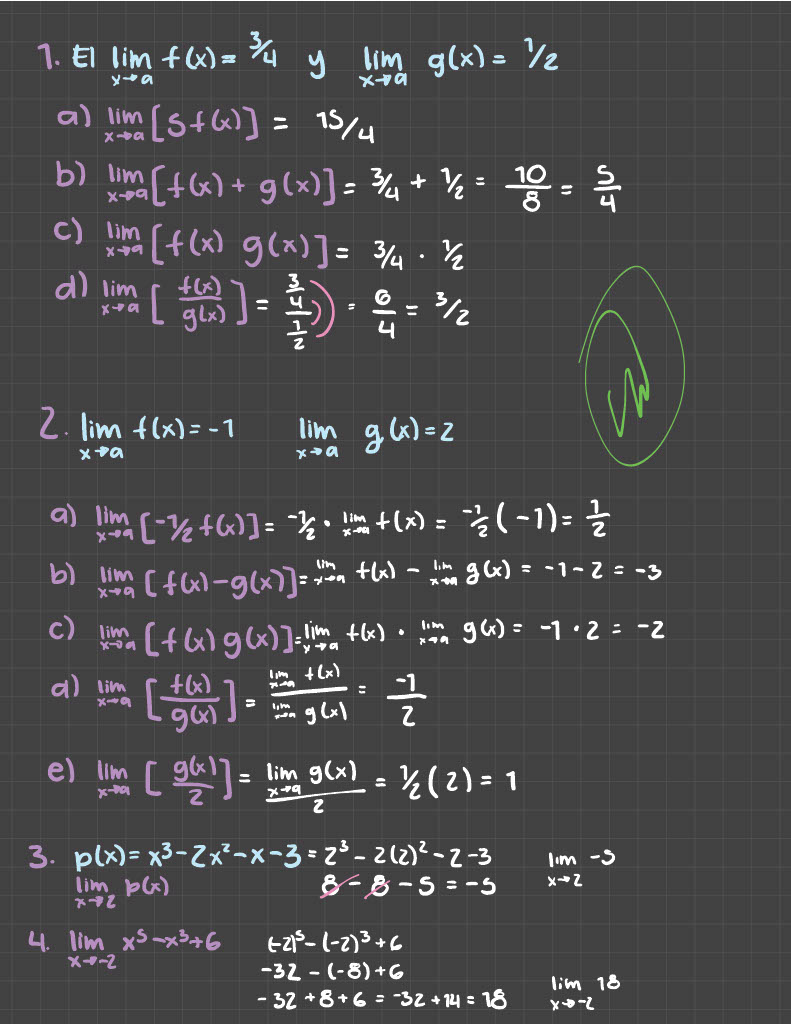 1. El lim x→a f(x) = 3/4 y lim x→a g(x) = 1/2
a) lim x→a [5 f(x)] = 15/4
b) lim x→a [f(x) + g(x)] = 3/4 + 1/2 = 10/8 = 5/4
c) lim x→a [f(x) g(x)] = 3/4 · 1/2
d) lim x→a [f(x)/g(x)] = (3/4)/(1/2) = 6/4 = 3/2
2. lim x→a f(x) = -1 lim x→a g(x) = 2
a) lim x→a [-1/2 f(x)] = -1/2 · lim x→a f(x) = -1/2 (-1) = 1/2
b) lim x→a [f(x) - g(x)] = lim x→a f(x) - lim x→a g(x) = -1 - 2 = -3
c) lim x→a [f(x) g(x)] = lim x→a f(x) · lim x→a g(x) = -1 · 2 = -2
d) lim x→a [f(x)/g(x)] = lim x→a f(x) / lim x→a g(x) = -1/2
e) lim x→a [g(x)/2] = lim x→a g(x) / 2 = 1/2 (2) = 1
3. p(x) = x³ - 2x² - x - 3 = 2³ - 2(2)² - 2 - 3 lim x→2 -5
lim x→2 p(x) 8 - 8 - 5 = -5
4. lim x→-2 x⁵ - x³ + 6 (-2)⁵ - (-2)³ + 6
-32 - (-8) + 6
-32 + 8 + 6 = -32 + 14 = 18 lim x→-2 18